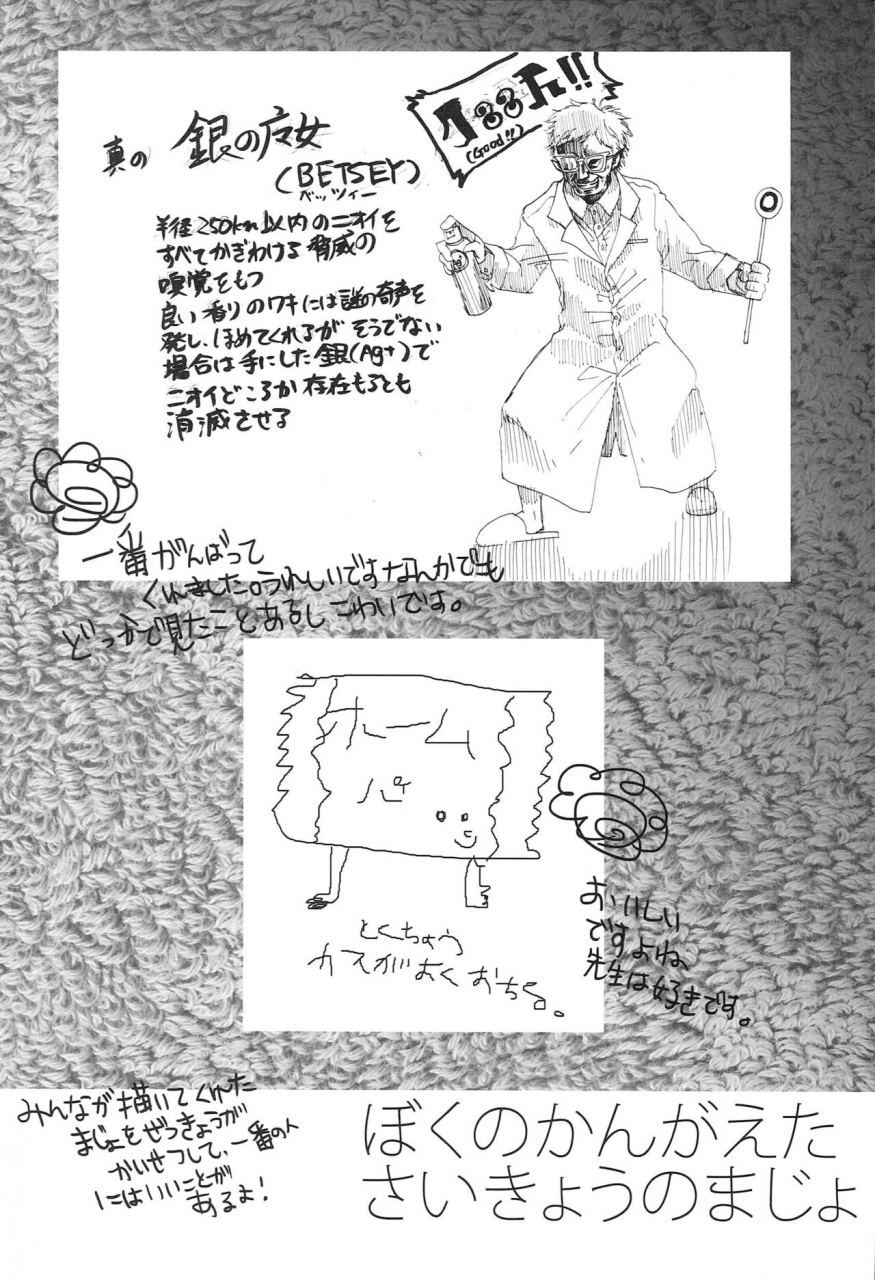 真の 銀の魔女
(BETSEY)
ベッツィー
(Good!!)
半径250km以内のニオイを
すべてかぎわける脅威の
嗅覚をもつ
良い香りのワキには謎の奇声を
発し、ほめてくれるがそうでない
場合は手にした銀(Ag+)で
ニオイどころか存在もろとも
消滅させる
一番がんばって
くれました。うれしいですなんかでも
どっかで見たことあるしこわいです。
ルーム
パイ
とくちょう
カスがおくおちる。
おいしい
ですよね、
先生は好きです。
みんなが描いてくれた
まじょをぜっきょうが
かいせつして、一番の人
にはいいことが
あるよ!
ぼくのかんがえた
さいきょうのまじょ